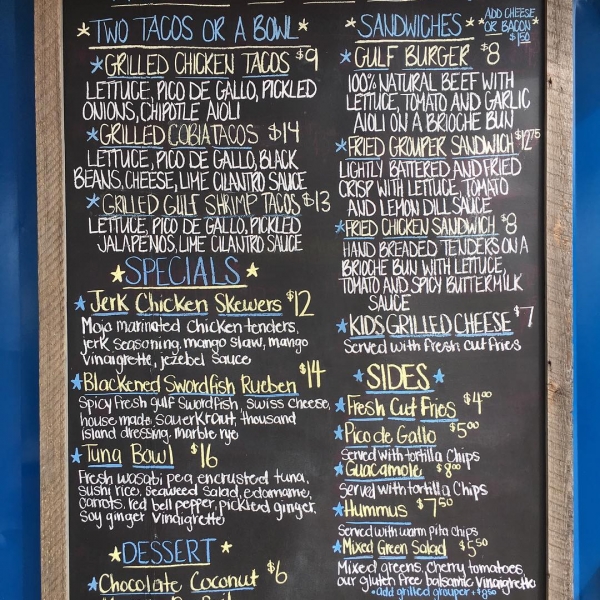 *TWO TACOS OR A BOWL*
*GRILLED CHICKEN TACOS $9
LETTUCE, PICO DE GALLO, PICKLED
ONIONS, CHIPOTLE AIOLI
*GRILLED COBIA TACOS $14
LETTUCE, PICO DE GALLO, BLACK
BEANS, CHEESE, LIME CILANTRO SAUCE
*GRILLED GULF SHRIMP TACOS $13
LETTUCE, PICO DE GALLO, PICKLED
JALAPENOS, LIME CILANTRO SAUCE
*SPECIALS*
*Jerk Chicken Skewers $12
Mojo marinated chicken tenders,
jerk seasoning, mango slaw, mango
vinaigrette, jezebel sauce
*Blackened Swordfish Rueben $14
Spicy fresh gulf swordfish, swiss cheese,
house made sauerkraut, thousand
island dressing, marble rye
*Tuna Bowl $16
Fresh wasabi pea encrusted tuna,
sushi rice, seaweed salad, edamame,
carrots, red bell pepper, pickled ginger,
soy ginger vinaigrette
*DESSERT*
*Chocolate Coconut $6
*SANDWICHES*
*ADD CHEESE
OR BACON*
$1.50
*GULF BURGER $8
100% NATURAL BEEF WITH
LETTUCE, TOMATO AND GARLIC
AIOLI ON A BRIOCHE BUN
*FRIED GROUPER SANDWICH $12.75
LIGHTLY BATTERED AND FRIED
CRISP WITH LETTUCE, TOMATO
AND LEMON DILL SAUCE
*FRIED CHICKEN SANDWICH $8
HAND BREADED TENDERS ON A
BRIOCHE BUN WITH LETTUCE,
TOMATO AND SPICY BUTTERMILK
SAUCE
*KIDS GRILLED CHEESE $7
served with fresh cut fries
*SIDES*
*Fresh Cut Fries $4.00
*Pico de Gallo $5.00
served with tortilla chips
*Guacamole $8.00
Served with tortilla chips
*Hummus $7.50
Served with warm pita chips
*Mixed Green Salad $5.50
Mixed greens, cherry tomatoes,
our gluten free balsamic vinaigrette
*add grilled grouper +$8.50